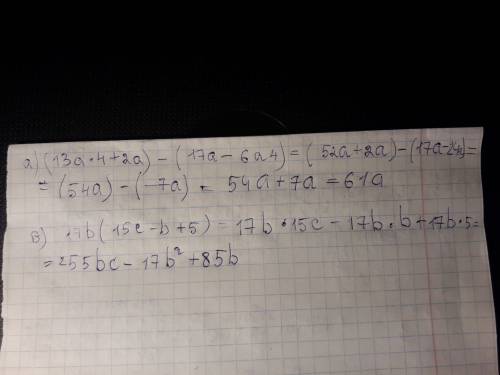 а) (13a·4+2a)-(17a-6a4)=(52a+2a)-(17a-24a)=
=(54a)-(-7a)= 54a+7a=61a
в) 17b(15c-b+5)=17b·15c-17b·b+17b·5=
=255bc-17b²+85b